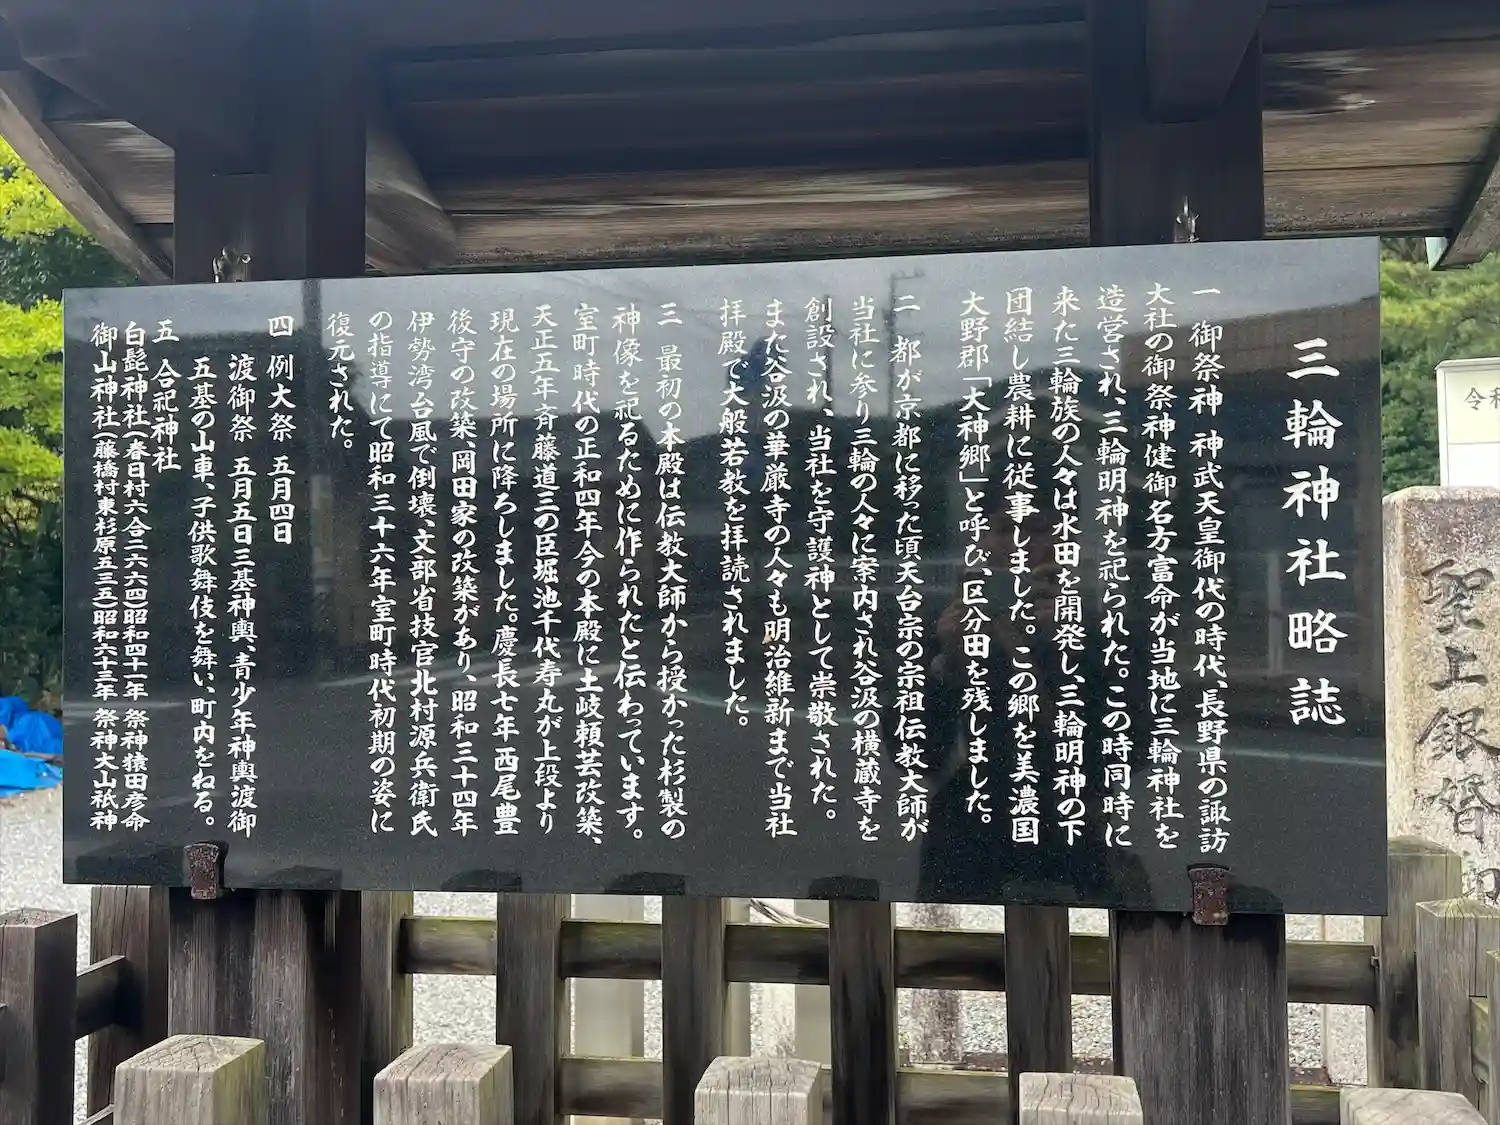 三輪神社略誌
一 御祭神 神武天皇御代の時代、長野県の諏訪
大社の御祭神健御名方富命が当地に三輪神社を
造営され、三輪明神を祀られた。この時同時に
来た三輪族の人々は水田を開発し、三輪明神の下
団結し農耕に従事しました。この郷を美濃国
大野郡「大神郷」と呼び、区分田を残しました。
二 都が京都に移った頃天台宗の宗祖伝教大師が
当社に参り三輪の人々に案内され谷汲の横蔵寺を
創設され、当社を守護神として崇敬された。
また谷汲の華厳寺の人々も明治維新まで当社
拝殿で大般若教を拝読されました。
三 最初の本殿は伝教大師から授かった杉製の
神像を祀るために作られたと伝わっています。
室町時代の正和四年今の本殿に土岐頼芸改築、
天正五年斉藤道三の臣堀池千代寿丸が上段より
現在の場所に降ろしました。慶長七年西尾豊
後守の改築、岡田家の改築があり、昭和三十四年
伊勢湾台風で倒壊、文部省技官北村源兵衛氏
の指導にて昭和三十六年室町時代初期の姿に
復元された。
四 例大祭 五月四日
渡御祭 五月五日三基神輿、青少年神輿渡御
五基の山車、子供歌舞伎を舞い町内をねる。
五 合祀神社
白髭神社(春日村六合二六六四)昭和四十一年 祭神猿田彦命
御山神社(藤橋村東杉原五三五)昭和六十三年 祭神大山祇神
令和
聖上銀婚